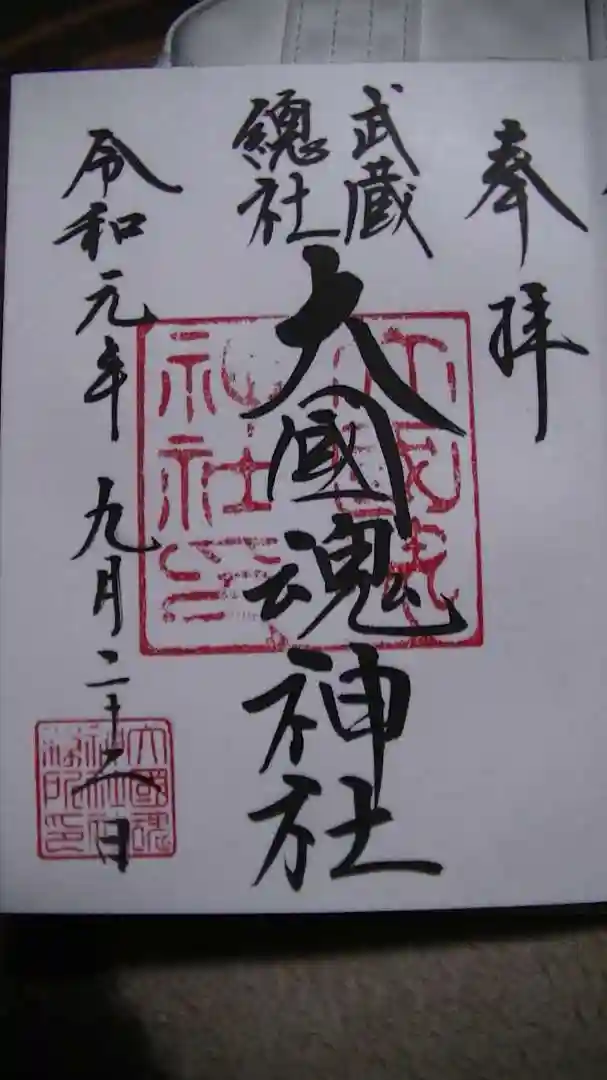 奉拝
武蔵
總社
大國魂神社
令和元年九月二十六日
大國魂
神社印
大國魂
神社社
務所印